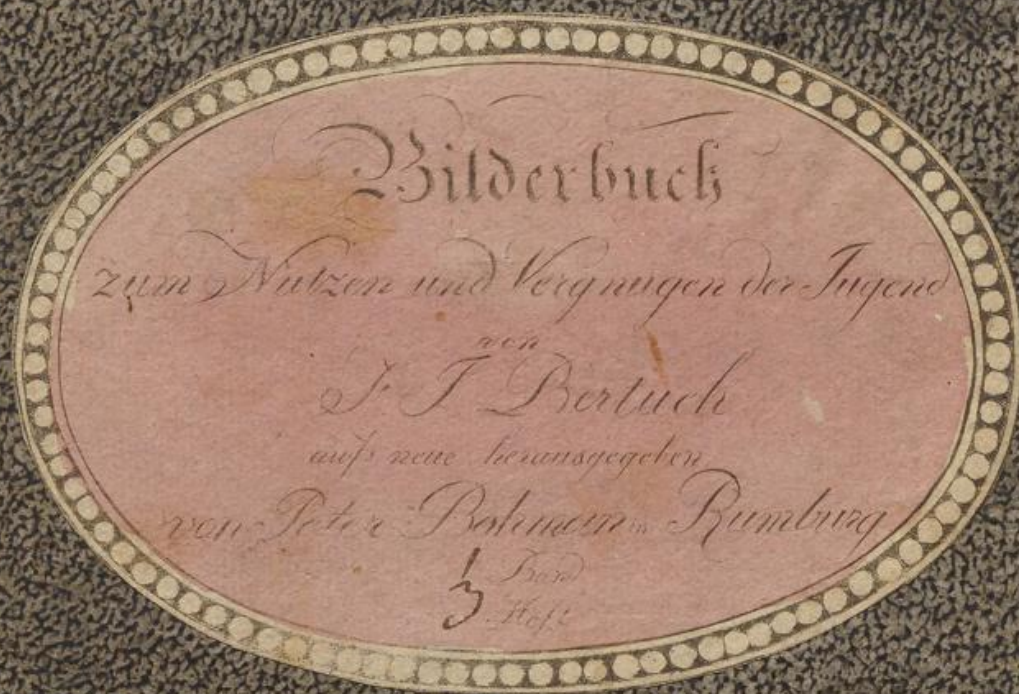 Bilderbuch
zum Nutzen und Vergnugen der Jugend
von
F J Bertuch
aufs neue herausgegeben
von Peter Bohmann in Rumburg
1 Band
3 Heft